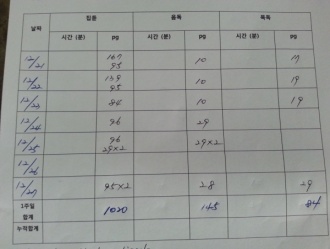 날짜 집중 음독 묵독
시간 (분) pg 시간 (분) pg 시간 (분) pg
12/21 167 10 17
95
12/22 139 10 19
95
12/23 84 10 19
12/24 96 29
12/25 96 29×2
29×2
12/26
12/27 95×2 28 29
1주일 합계 1020 145 84
누적합계